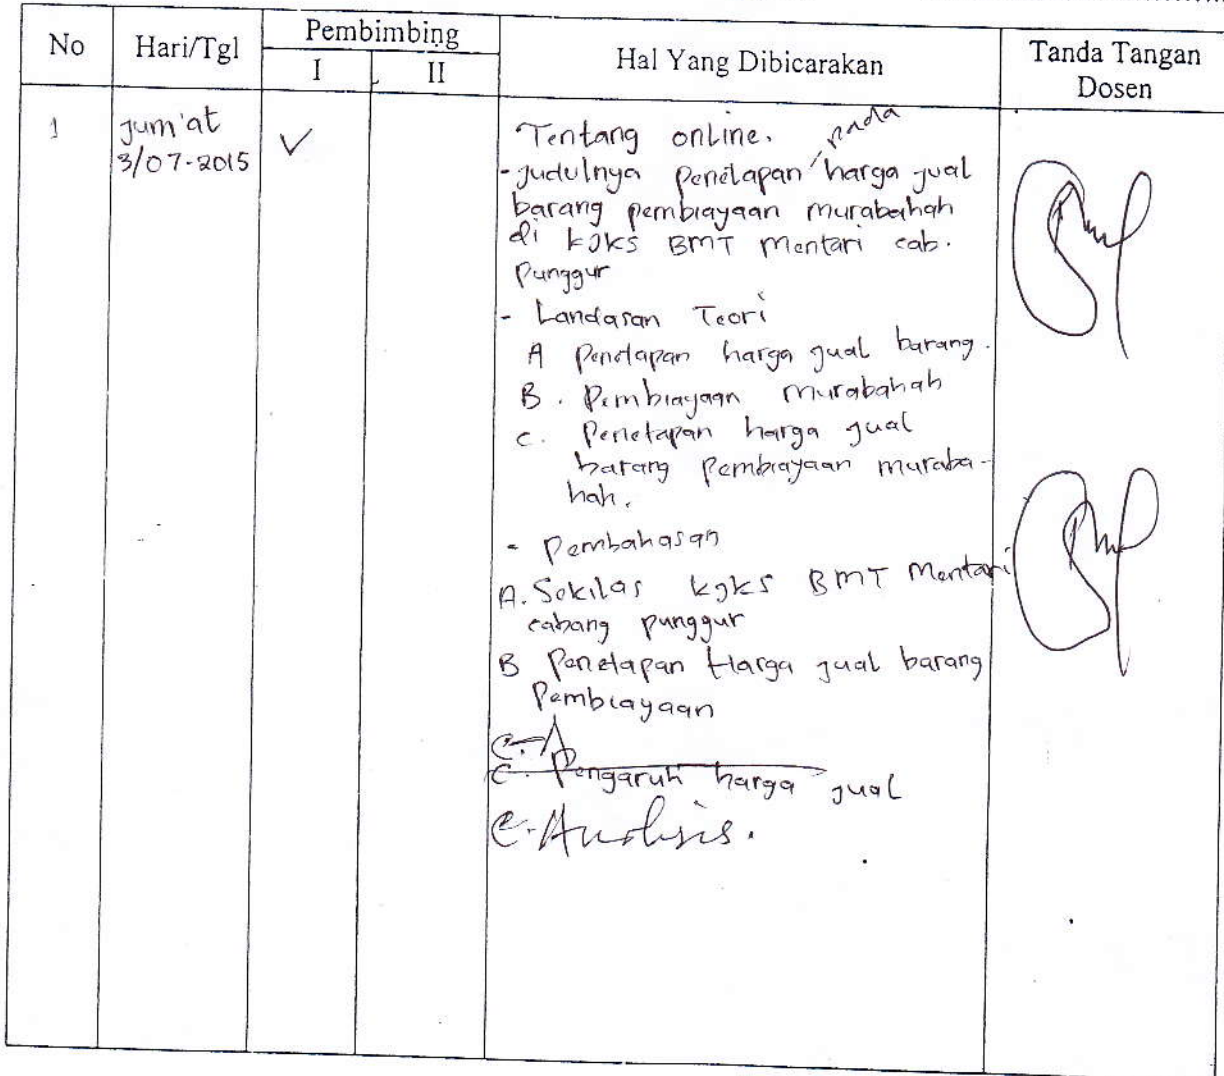 No Hari/Tgl Pembimbing Hal Yang Dibicarakan Tanda Tangan Dosen
I II
1 Jum'at 3/07-2015 ✓
Tentang online.
- Judulnya penetapan harga jual
pada
barang pembiayaan murabahah
di KJKS BMT Mentari cab.
Punggur
- Landasan Teori
A Penetapan harga jual barang.
B. Pembiayaan murabahah
C. Penetapan harga jual
barang pembiayaan muraba-
hah.
- Pembahasan
A. Sekilas KJKS BMT Mentari
cabang punggur
B Penetapan Harga jual barang
Pembiayaan
C. A
C. Pengaruh harga jual
C. Analisis.